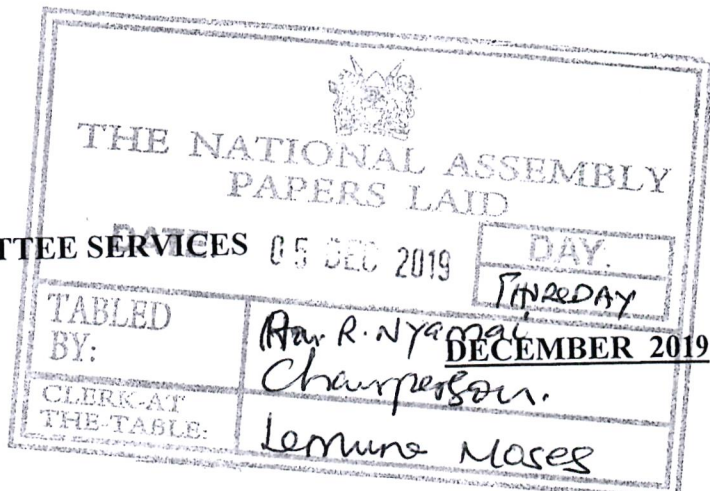 THE NATIONAL ASSEMBLY
PAPERS LAID
TTEE SERVICES
DATE: 05 DEC 2019
DAY.
THURSDAY
TABLED BY:
Hon. R. Nyamai
Chairperson.
DECEMBER 2019
CLERK-AT THE-TABLE:
Lemuna Moses